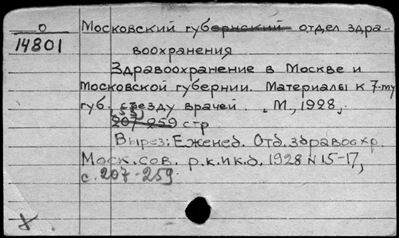 0
14801
Московский губернский отдел здра-
воохранения
Здравоохранение в Москве и
Московской губернии. Материалы к 7-му
губ. съезду врачей. М., 1928,
(53)
207-259 стр
Вырез: Еженед. Отд. здравоохр.
Моск. сов. р.к.и к.д. 1928 N 15-17,
с. 207-259.